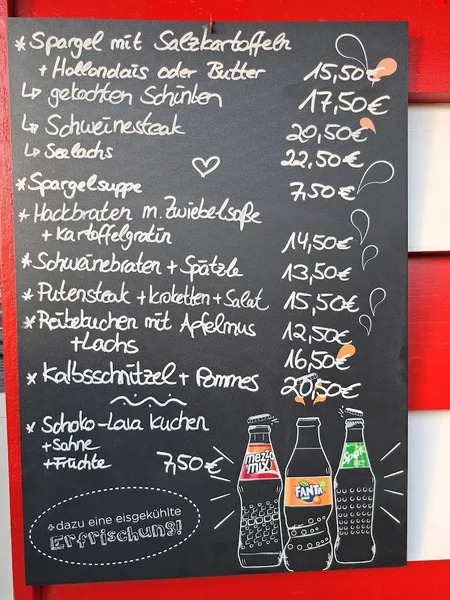 * Spargel mit Salzkartoffeln
+ Hollondais oder Butter 15,50€
↳ gekochten Schinken 17,50€
↳ Schweinesteak 20,50€
↳ Seelachs 22,50€
* Spargelsuppe 7,50€
* Hackbraten m. Zwiebelsoße
+ Kartoffelgratin 14,50€
* Schweinebraten + Spätzle 13,50€
* Putensteak + Kroketten + Salat 15,50€
* Reibekuchen mit Apfelmus 12,50€
+ Lachs 16,50€
* Kalbsschnitzel + Pommes 20,50€
* Schoko-Lava Kuchen
+ Sahne
+ Früchte 7,50€
mezzo mix
FANTA
Sprite
+ dazu eine eisgekühlte
Erfrischung!